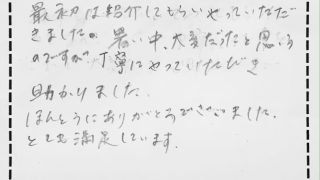 最初は紹介してもらいやっていただだ
きましたが 暑い中、大変だったと思いう
のですが丁寧にやっていただき
助かりました。
ほんとうにありがとうございました。
とても満足しています。